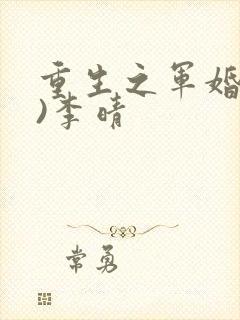 重生之军婚
)李晴
常勇